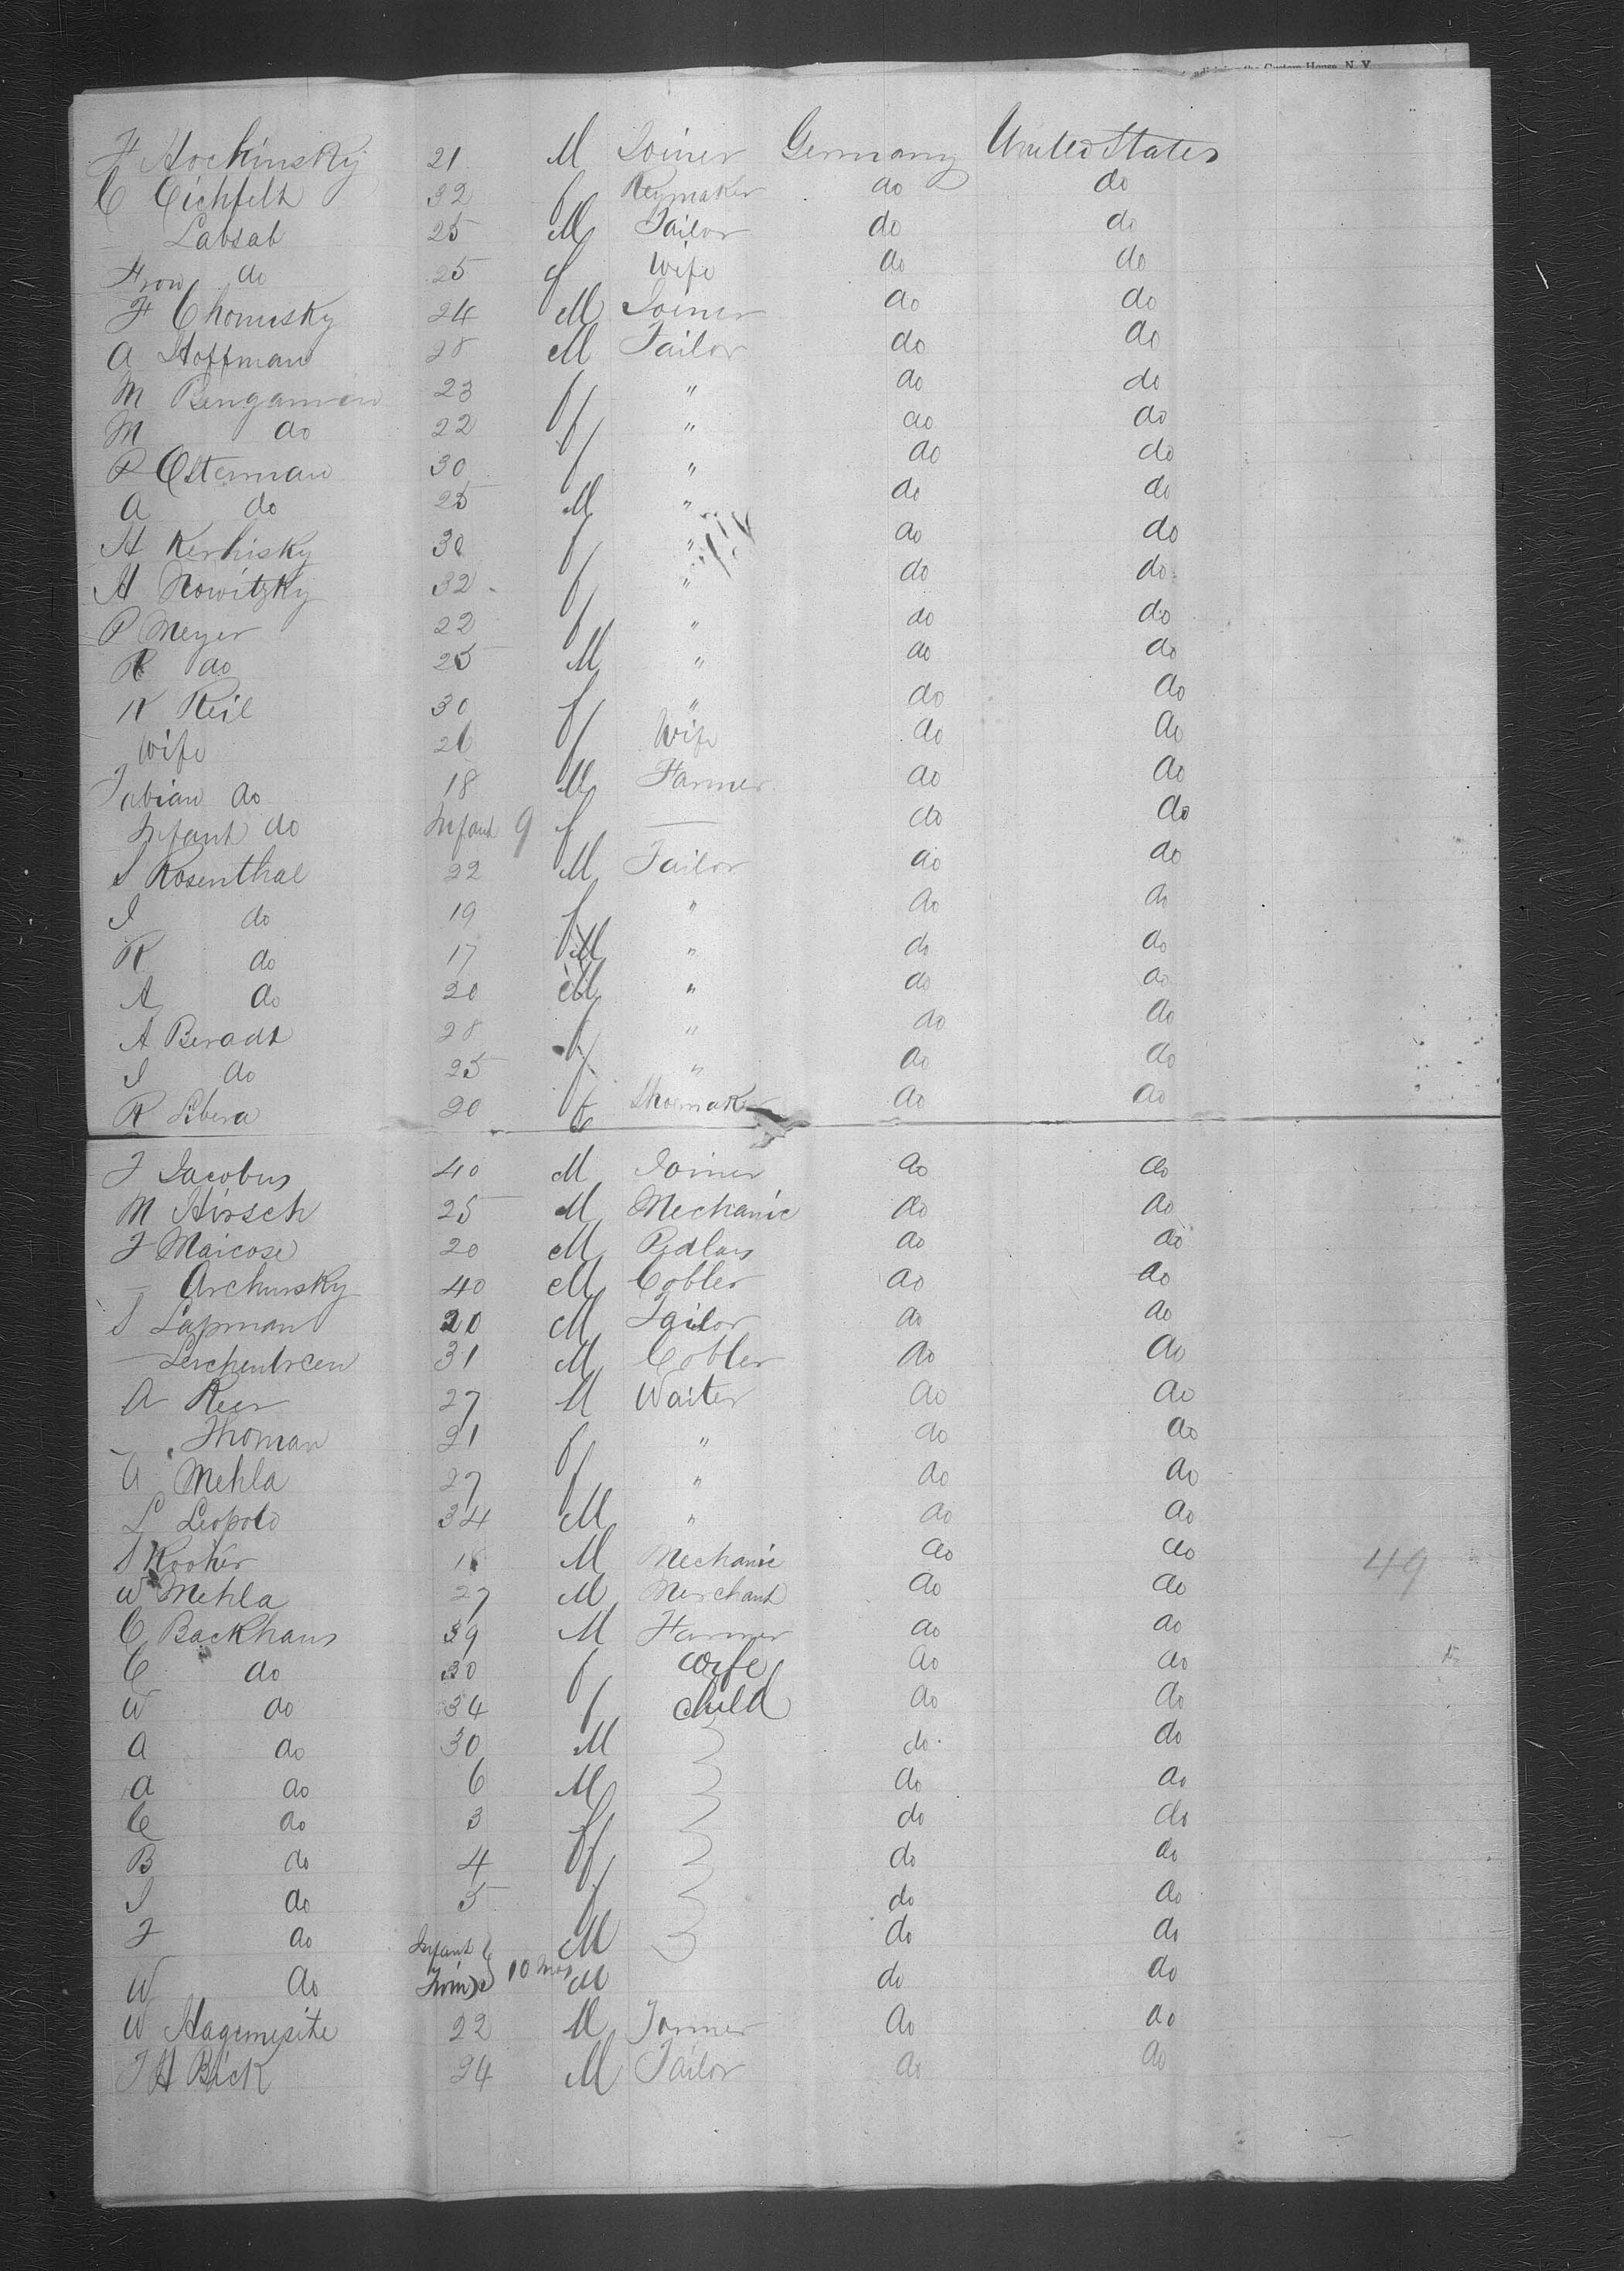 adjoining the Custom House, N. Y.
F Hockinsky 21 M Joiner Germany United States
C Eichfelt 32 f Keymaker do do
— Labsab 25 M Tailor do do
Frow do 25 f Wife do do
F Chomusky 24 M Joiner do do
A Hoffman 28 M Tailor do do
M Bengamien 23 f " do do
M do 22 f " do do
P Osterman 30 f " do do
A do 25 M " do do
H Kerhisky 30 f " do do
H Nowitzky 32 f " do do
P Meyer 22 f " do do
R do 25 M " do do
N Keil 30 f " do do
Wife 26 f Wife do do
Fabian do 18 M Farmer do do
Infant do Infant 9 f — do do
S Rosenthal 22 M Tailor do do
I do 19 f " do do
R do 17 M " do do
A do 20 M " do do
A Beradt 28 f " do do
I do 25 f " do do
R Libera 20 f Shoemaker do do
J Jacobus 40 M Joiner do do
M Hirsch 25 M Mechanic do do
J Maicose 20 M Pedlars do do
— Archursky 40 M Cobler do do
S Lapman 20 M Tailor do do
— Lerchentreen 31 M Cobler do do
A Keer 27 M Waiter do do
— Thoman 21 f " do do
A Mehla 27 f " do do
L Leopold 34 M " do do
S Kooker M Mechanic do do 49
W Mehla 27 M Merchant do do
C Backhaus 39 M Farmer do do
C do 30 f wife do do
W do 34 f child do do
A do 30 M do do
A do 6 M do do
C do 3 f do do
B do 4 f do do
I do 5 f do do
F do Infant M do do
W do Twins } 10 mos M do do
W Hagemesite 22 M Farmer do do
J H Bick 24 M Tailor do do